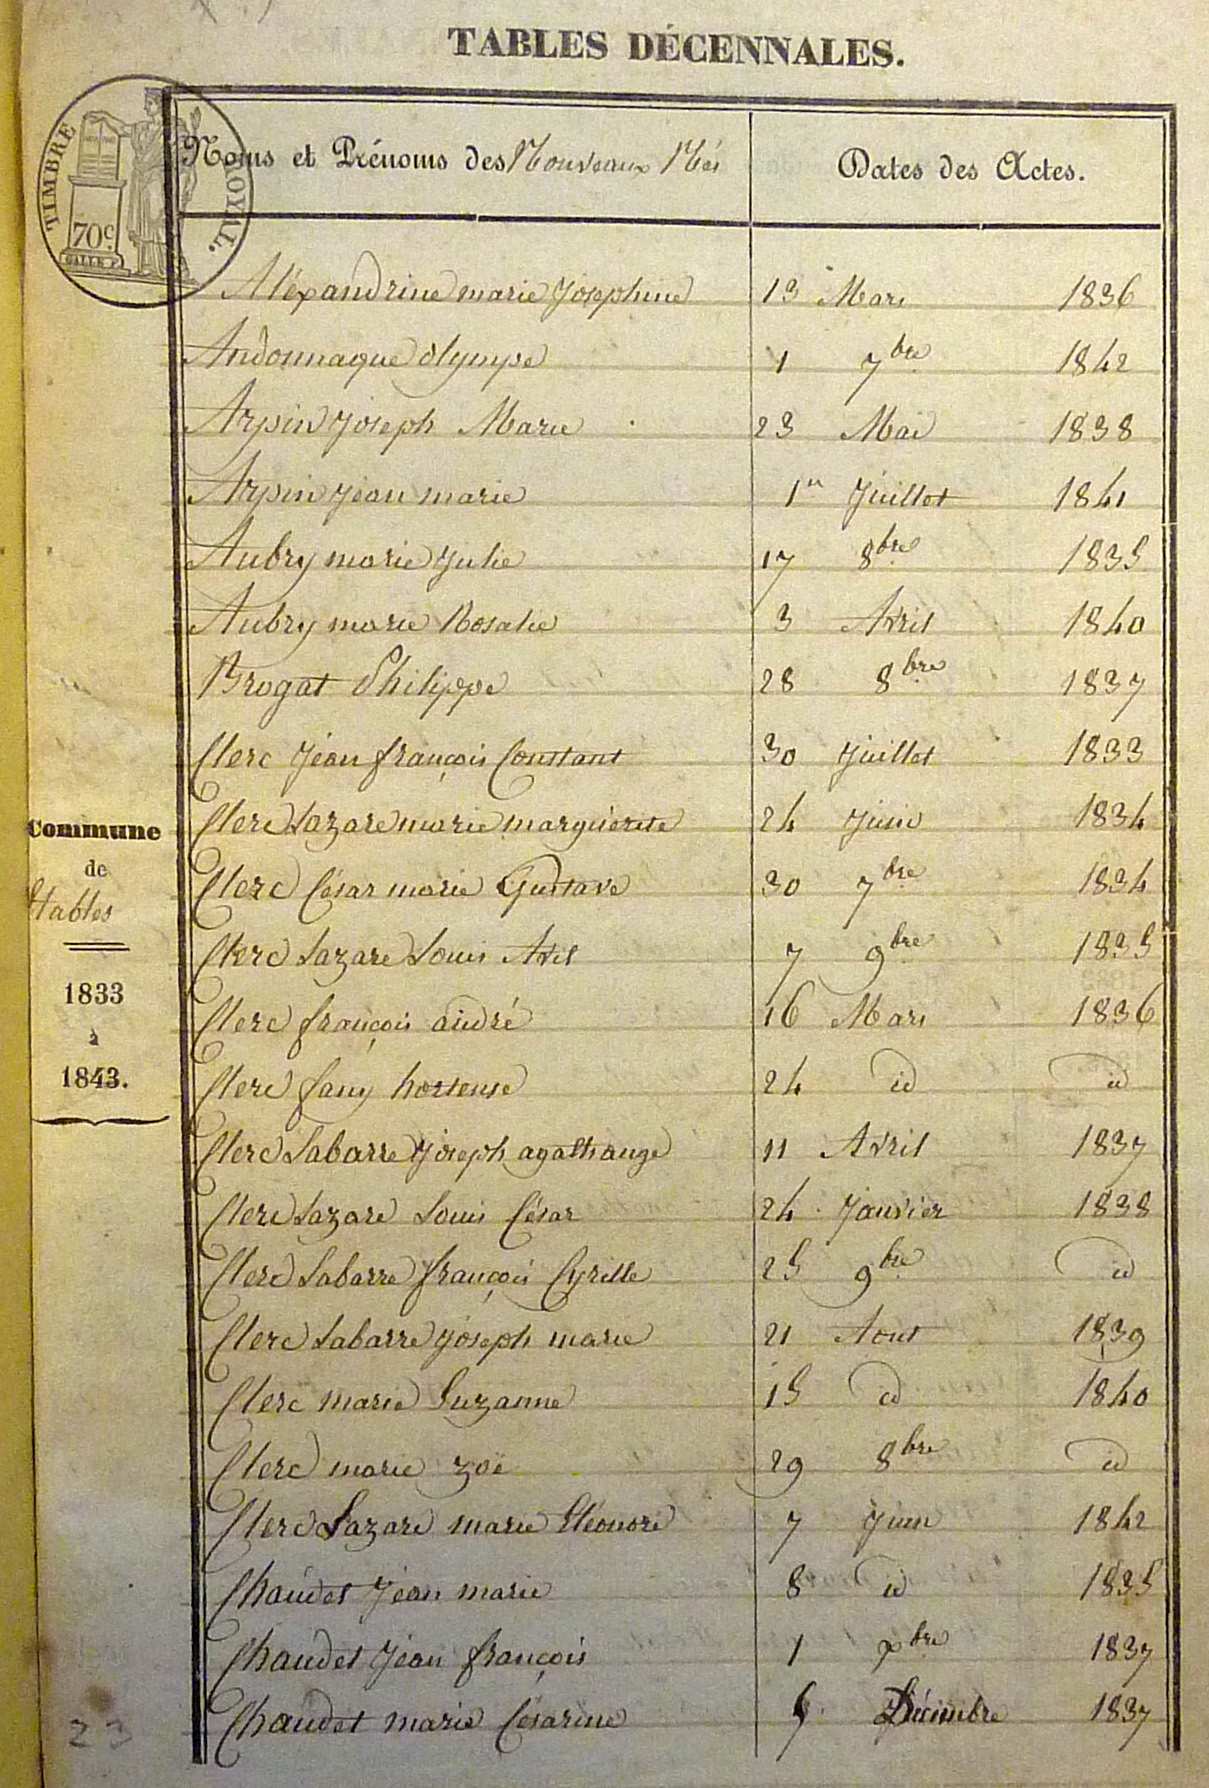 TABLES DÉCENNALES.
TIMBRE ROYAL.
70c.
Noms et Prénoms des Nouveaux Nés Dates des Actes.
Aléxandrine marie Josephine 13 Mars 1836
Andonnaque olympe 1 7bre 1842
Arpin Joseph Marie 23 Mai 1838
Arpin Jean marie 1er Juillet 1841
Aubry marie Julie 17 8bre 1835
Aubry marie Rosalie 3 Avril 1840
Brogat Philippe 28 8bre 1837
Clerc Jean françois Constant 30 Juillet 1833
Clerc Lazare marie marguerite 24 Juin 1834
Clerc César marie Gustave 30 7bre 1834
Clerc Lazare Louis Avit 7 9bre 1835
Clerc françois andré 16 Mars 1836
Clerc fany hortense 24 id id
Clerc Labarre Joseph agathange 11 Avril 1837
Clerc Lazare Louis César 24 Janvier 1838
Clerc Labarre françois Cyrille 25 9bre id
Clerc Labarre Joseph marie 21 Aout 1839
Clerc marie Suzanne 15 id 1840
Clerc marie zoé 29 8bre id
Clerc Lazare marie Eléonore 7 Juin 1842
Chaudet Jean marie 8 id 1835
Chaudet Jean françois 1 xbre 1837
Chaudet marie Césarine Décembre 1837
Commune
de
Etables
1833
à
1843.
23